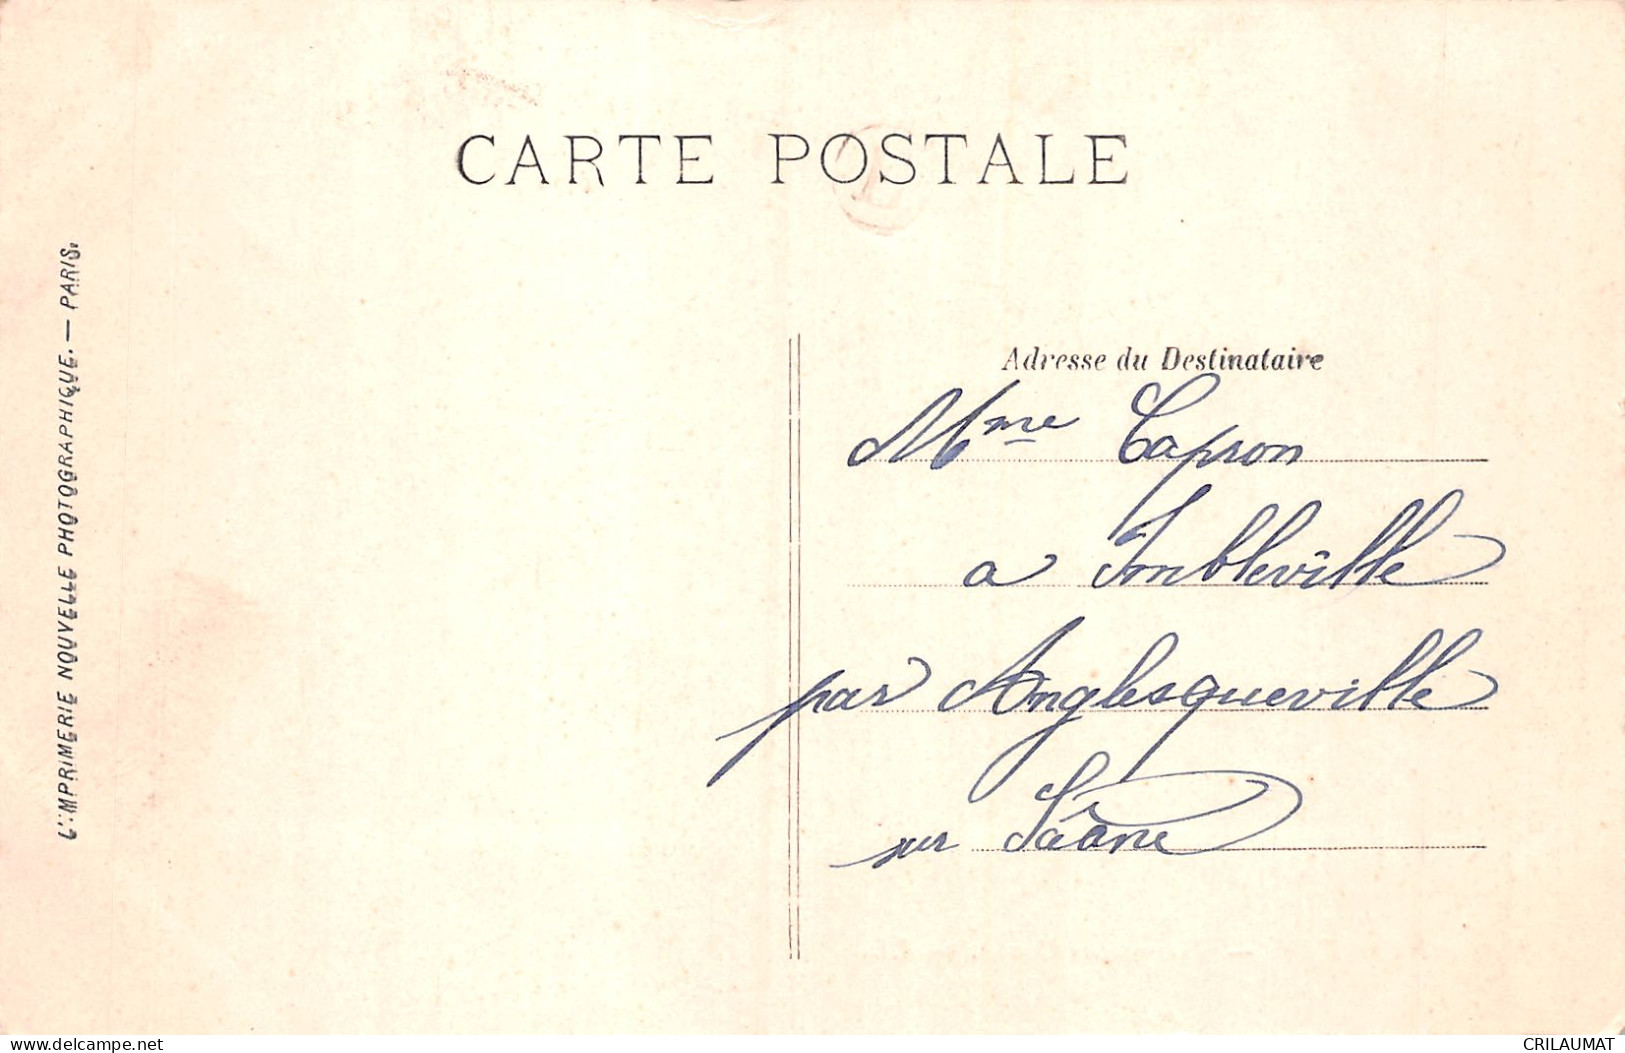 CARTE POSTALE
L'IMPRIMERIE NOUVELLE PHOTOGRAPHIQUE. — PARIS.
Adresse du Destinataire
Mme Capron
a Imbleville
par Anglesqueville
sur Saâne
delcampe.net
CRILAUMAT